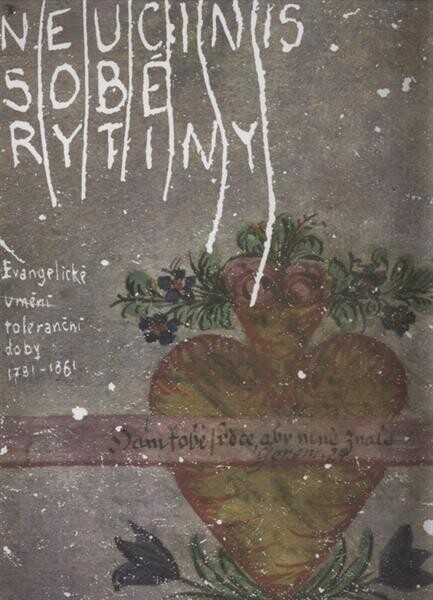 NEUČINÍŠ
SOBĚ
RYTINY
Evangelické
umění
toleranční
doby
1781-1861
Dám tobě srdce, aby mně znalo
Jerem. 24